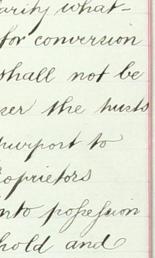 arity what-
for conversion
shall not be
ser the trusts
purport to
roprietors
nto possession
hold and